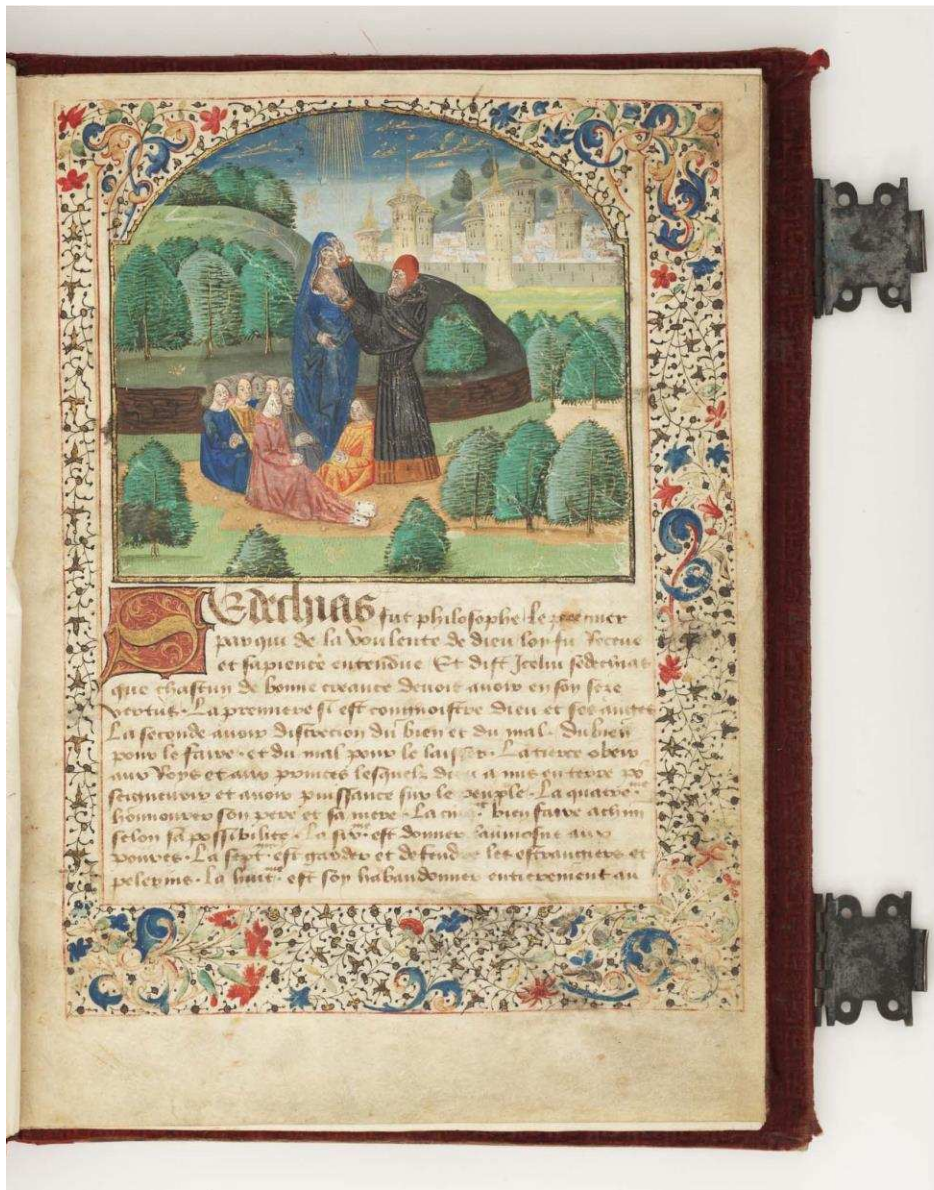 Sedechias fut philosophe le premier
par qui de la voulente de dieu loy fu Receue
et sapience entendue Et dist Icelui sedechias
que chascun de bonne creance devoit avoir en soy seze
vertus. La premiere si est congnoistre dieu et ses anges
La seconde avoir discrecion du bien et du mal. Du bien
pour le faire. et du mal pour le laisser. La tierce obeir
aux Roys et aux princes lesquelz dieu a mis en terre po
seigneurir et avoir puissance sur le peuple. La quatre.me
honnourer son pere et sa mere. La cinq.e bien faire achun
selon sa possibilite. La six.e est donner laumosne aux
povres. La sept.me est garder et defendre les estrangiers et
pelerins. La huit.me est soy habandonner entierement au